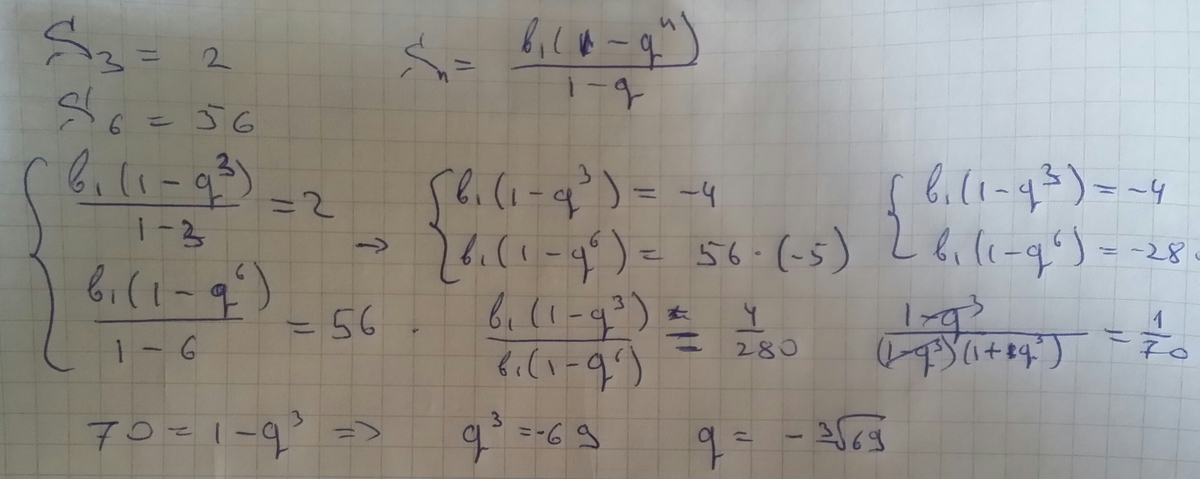 S₃ = 2    Sₙ = b₁(1 - qⁿ) / (1 - q)
S₆ = 56
{ b₁(1 - q³) / (1 - 3) = 2 → { b₁(1 - q³) = -4    { b₁(1 - q³) = -4
b₁(1 - q⁶) / (1 - 6) = 56 .    b₁(1 - q⁶) = 56 · (-5)    b₁(1 - q⁶) = -28
b₁(1 - q³) / b₁(1 - q⁶) = 4 / 280    (1 - q³) / (1 - q³)(1 + q³) = 1 / 70
70 = 1 - q³ => q³ = -69    q = - ³√69